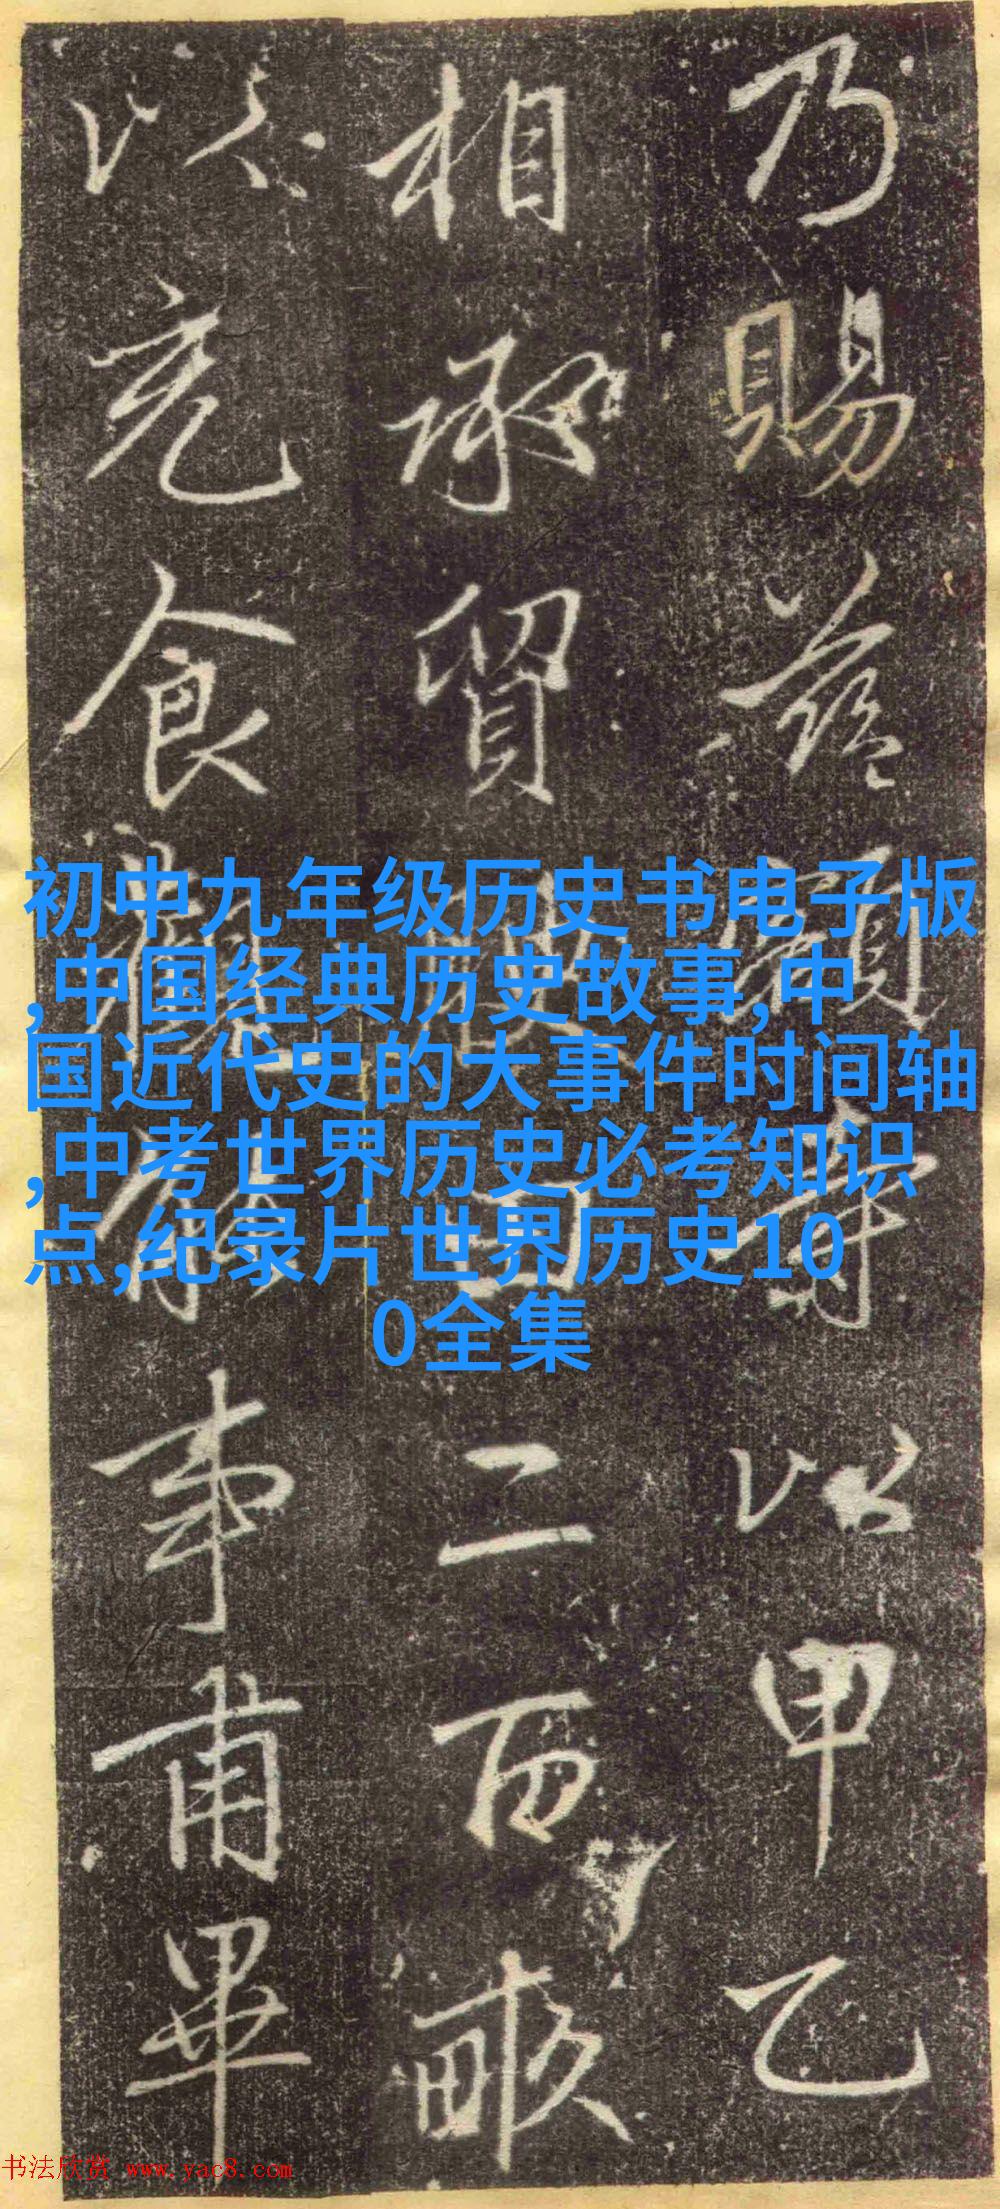 乃賜益顧尋以甲乙
相承貿
二百畝
以充食
事甫畢
初中九年级历史书电子版
,中国经典历史故事,中
国近代史的大事件时间轴
,中考世界历史必考知识
点,纪录片世界历史10
0全集
书法欣赏 www.yac8.com